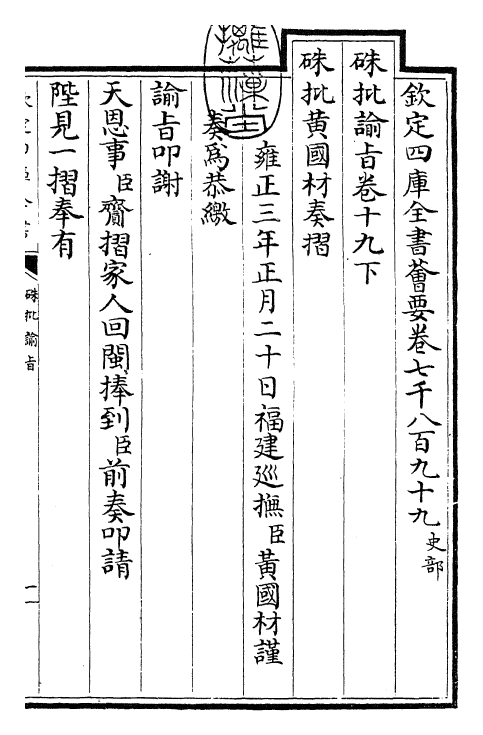 欽定四庫全書薈要卷七千八百九十九 史部
硃批諭旨卷十九下
硃批黃國材奏摺
雍正三年正月二十日福建巡撫臣黃國材謹
奏爲恭繳
諭旨叩謝
天恩事臣齎摺家人回閩捧到臣前奏叩請
陛見一摺奉有
硃批諭旨
一